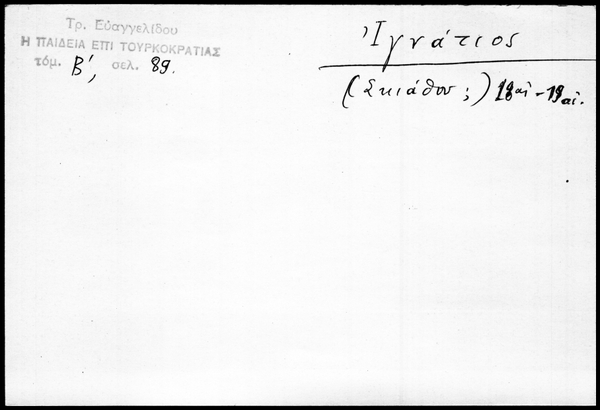 Τρ. Εὐαγγελίδου
Η ΠΑΙΔΕΙΑ ΕΠΙ ΤΟΥΡΚΟΚΡΑΤΙΑΣ
τόμ. Β΄, σελ. 89.
Ἰγνάτιος
(Σκιάθου ;) 18 αἰ - 19 αἰ.